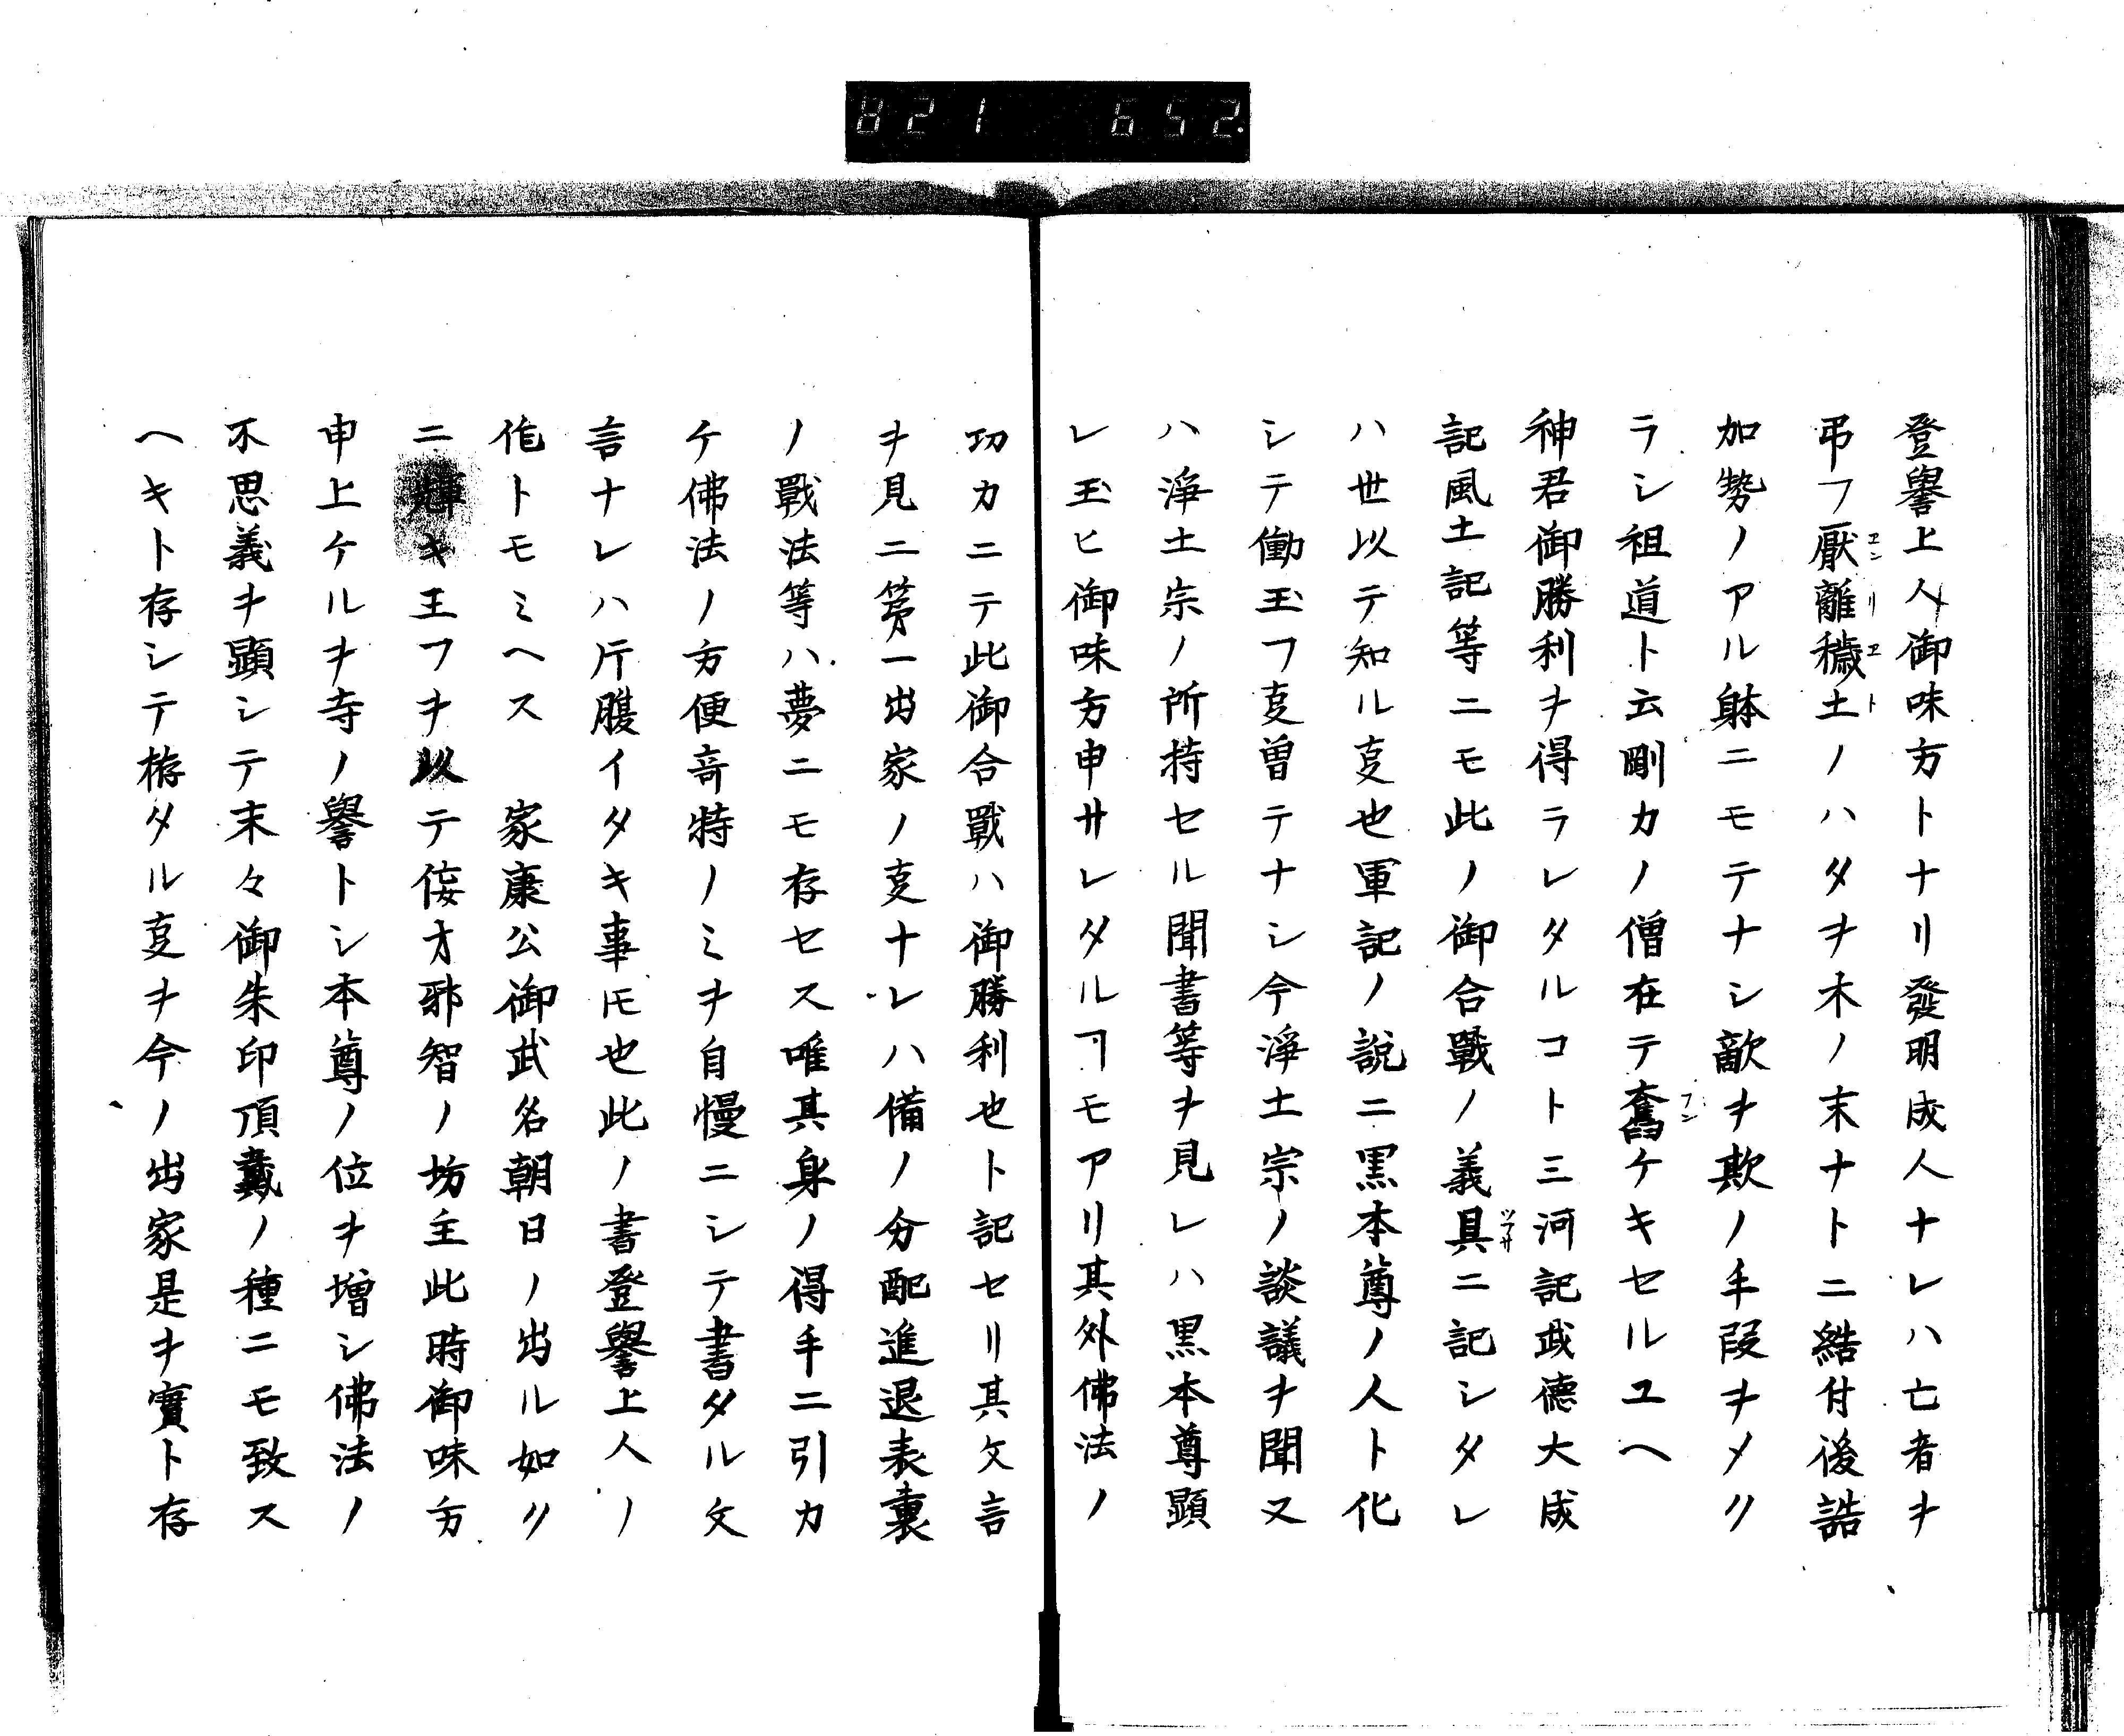 821 652.
登譽上人御味方トナリ發明成人ナレハ亡者ヲ
弔フ厭離穢土ノハタヲ木ノ末ナトニ結付後詰
加勢ノアル躰ニモテナシ敵ヲ欺ノ手段ヲメク
ラシ祖道ト云剛力ノ僧在テ奮ケキセルユヘ
神君御勝利ヲ得ラレタルコト三河記武德大成
記風土記等ニモ此ノ御合戰ノ義具ニ記シタレ
ハ世以テ知ル叓也軍記ノ說ニ黒本尊ノ人ト化
シテ働玉フ叓曽テナシ今淨土宗ノ談議ヲ聞又
ハ淨土宗ノ所持セル聞書等ヲ見レハ黒本尊顕
レ玉ヒ御味方申サレタルヿモアリ其外佛法ノ
功力ニテ此御合戰ハ御勝利也ト記セリ其文言
ヲ見ニ第一出家ノ叓ナレハ備ノ分配進退表裏
ノ戰法等ハ夢ニモ存セス唯其身ノ得手ニ引カ
ケ佛法ノ方便奇特ノミヲ自慢ニシテ書タル文
言ナレハ片腹イタキ事𪜈也此ノ書登譽上人ノ
作トモミヘス　家康公御武名朝日ノ出ル如ク
ニ輝キ王フヲ以テ侫才邪智ノ坊主此時御味方
申上ケルヲ寺ノ譽トシ本尊ノ位ヲ増シ佛法ノ
不思義ヲ顕シテ末々御朱印頂戴ノ種ニモ致ス
ヘキト存シテ拵タル叓ヲ今ノ出家是ヲ實ト存